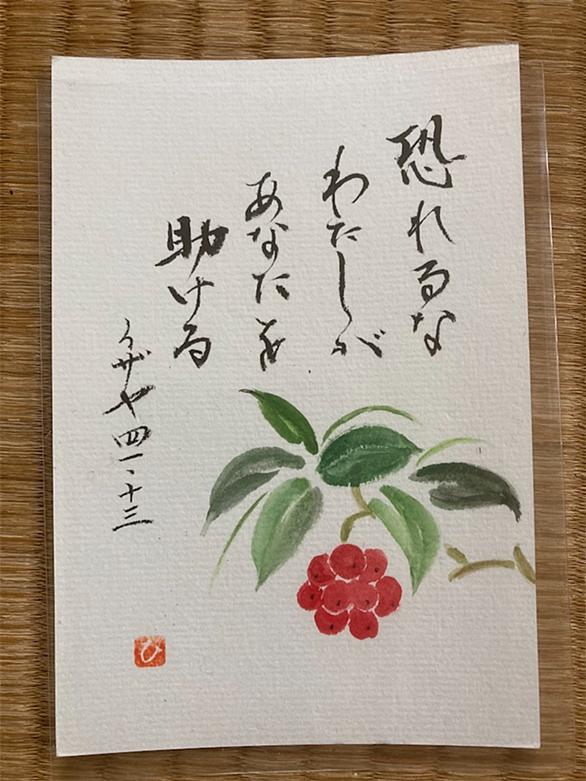 恐れるな
わたしが
あなたを
助ける
イザヤ四一・十三
ひ